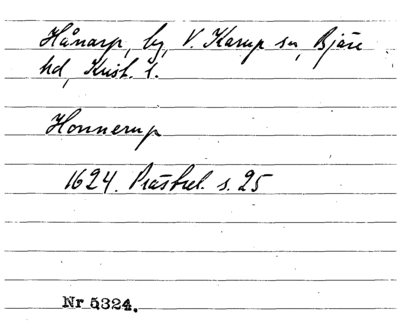 Hånarp, by, V. Karup sn, Bjäre
hd, Krist. l.
Honnerup
1624. Prästrel. s. 25
Nr 5324.